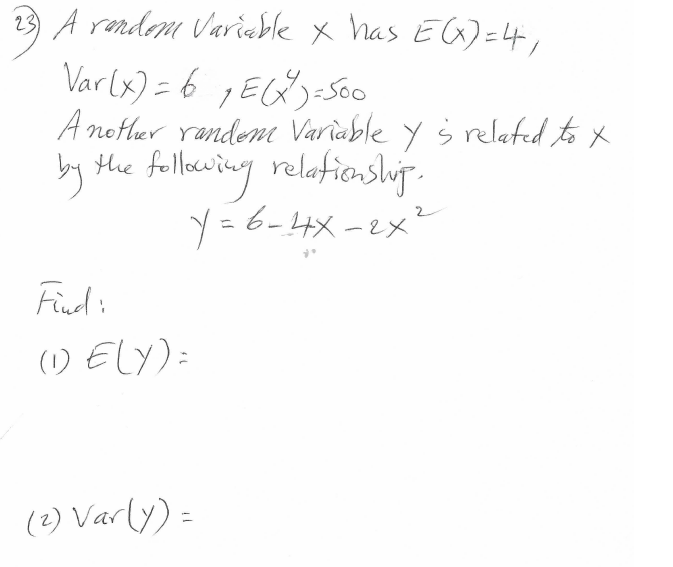 23) A random Variable x has E(x)=4,
Var(x) = 6 , E(x⁴)=500
Another random Variable y is related to x
by the following relationship.
y = 6-4x-2x²
Find:
(1) E(y) =
(2) Var(y) =